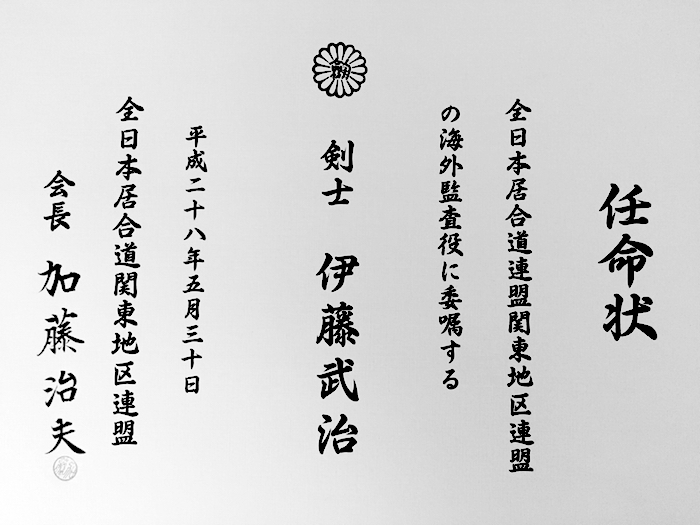 任命状
全日本居合道連盟関東地区連盟
の海外監査役に委嘱する
剣士 伊藤武治
平成二十八年五月三十日
全日本居合道関東地区連盟
会長 加藤治夫